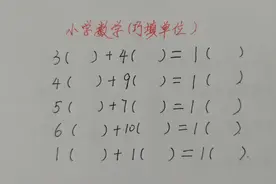 小学数学(巧填单位)
3( )+4( )=1( )
4( )+9( )=1( )
5( )+7( )=1( )
6( )+10( )=1( )
1( )+1( )=1( )